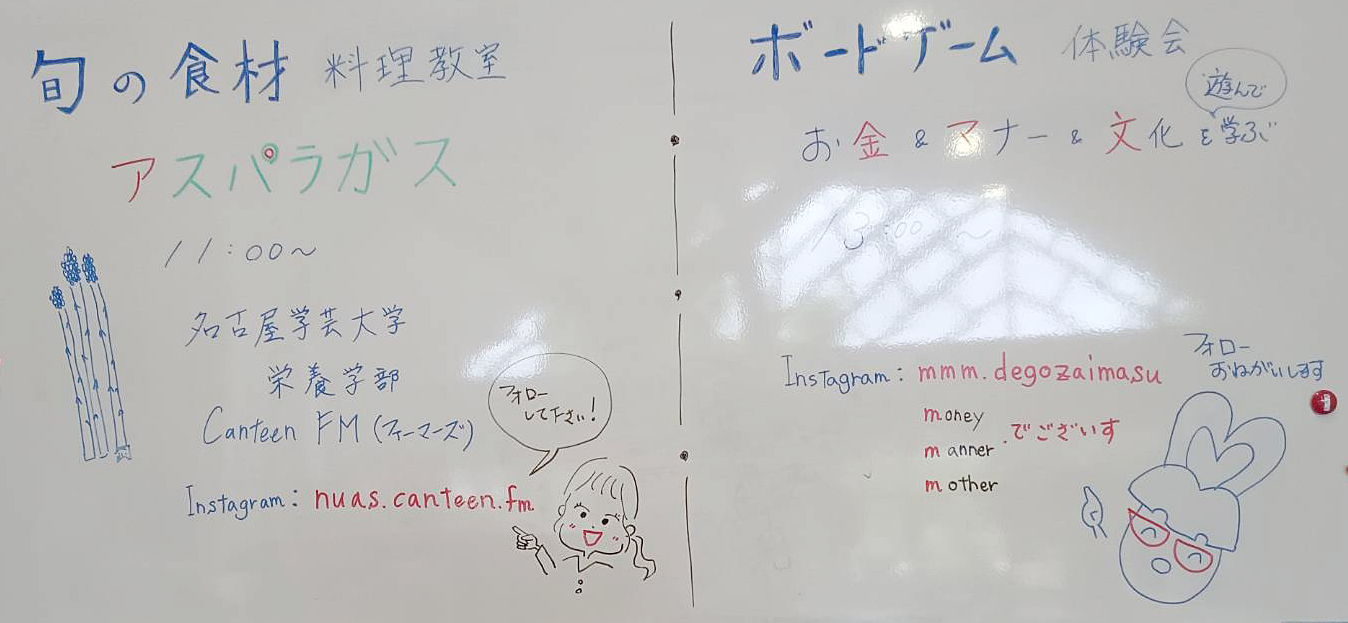 旬の食材 料理教室
アスパラガス
11:00～
名古屋学芸大学
栄養学部
Canteen FM (フィーマーズ)
フォロー
して下さい!
Instagram: nuas.canteen.fm
ボードゲーム 体験会
遊んで
お金&マナー&文化を学ぶ
13:00～
フォロー
おねがいします
Instagram: mmm.degozaimasu
money
manner .でございす
mother